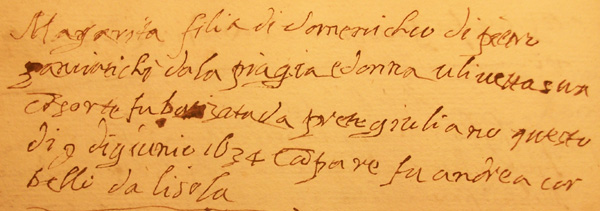 Margarita filia di domenicho di piero
dala piagia e donna ulivetta sua
cōsorte fu batizata da prete giuliano questo
di 9 di giunio 1634 Cōpare fu andrea cor
belli da lisola